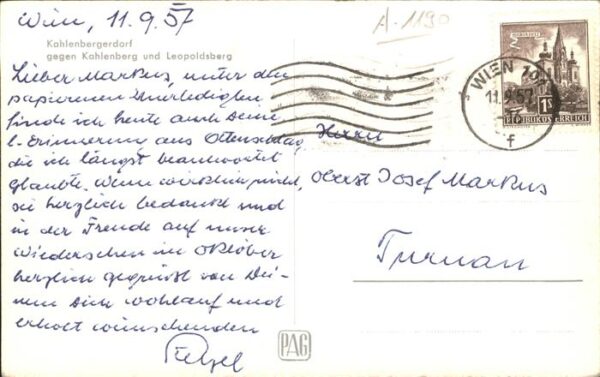 Wien, 11.9.57
A-1190
Kahlenbergerdorf
gegen Kahlenberg und Leopoldsberg
Lieber Markus, unter den
papierenen Unerledigten
finde ich heute auch Deine
Erinnerung aus Ottenschlag,
die ich längst beantwortet
glaubte. Wenn wirklich nicht,
sei herzlich bedankt und
in der Freude auf unser
Wiedersehen im Oktober
herzlich gegrüßt von Dei-
nem Dich wohlauf und
erholt wünschenden
Herrn
Oberst Josef Markus
Turnau
WIEN 101
11.9.57
f
MARIAZELL
1S
REPUBLIK ÖSTERREICH
PAG